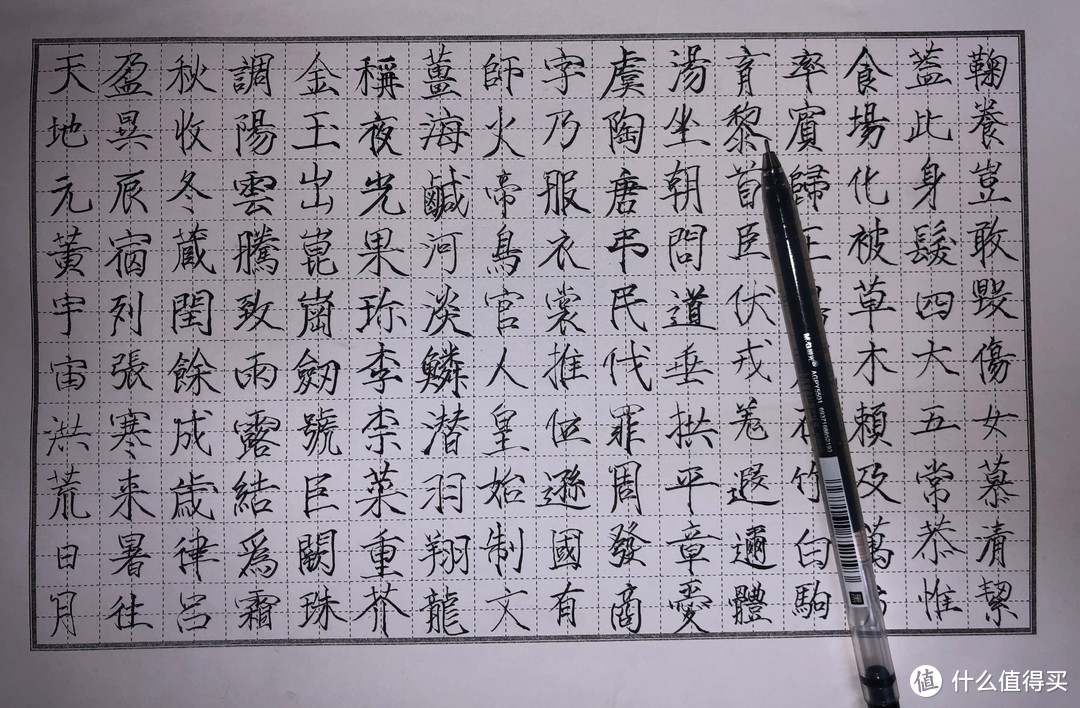 天地元黃宇宙洪荒日月
盈昃辰宿列張寒来暑往
秋收冬藏閏餘成歲律呂
調陽雲騰致雨露結爲霜
金玉出崑崗劒號巨闕珠
稱夜光果珍李柰菜重芥
薑海鹹河淡鱗潛羽翔龍
師火帝鳥官人皇始制文
字乃服衣裳推位遜國有
虞陶唐弔民伐罪周發商
湯坐朝問道垂拱平章愛
育黎首臣伏戎羌遐邇體
率賓歸王在竹白駒
食場化被草木賴及萬
蓋此身髮四大五常恭惟
鞠養豈敢毀傷女慕清絜
M&G晨光 AGPY5501
值 什么值得买